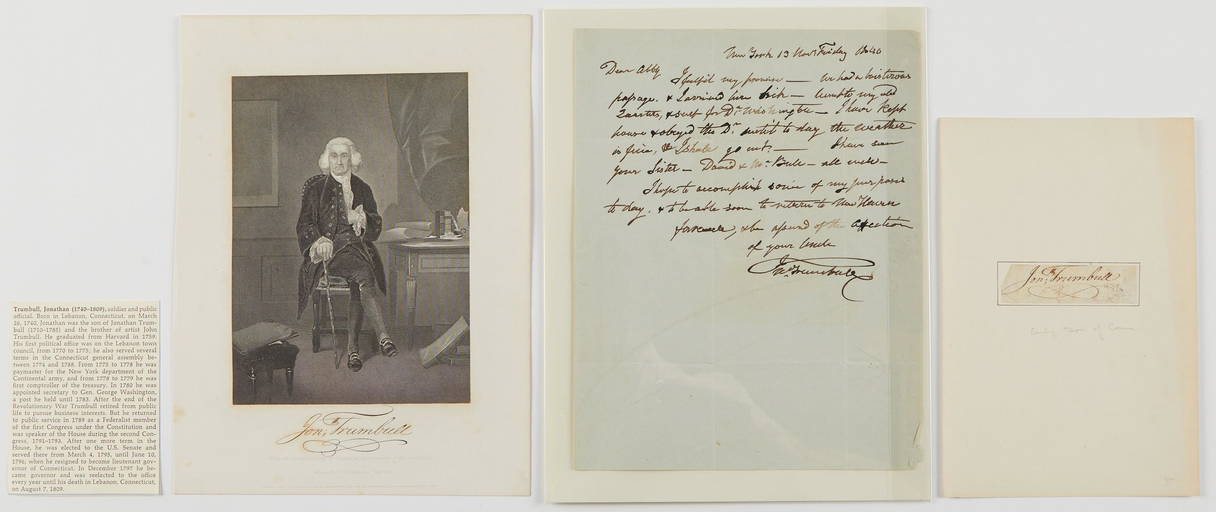 Trumbull, Jonathan (1740–1809), soldier and public
official. Born in Lebanon, Connecticut, on March
26, 1740, Jonathan was the son of Jonathan Trum-
bull (1710–1785) and the brother of artist John
Trumbull. He graduated from Harvard in 1759.
His first political office was on the Lebanon town
council, from 1770 to 1775; he also served several
terms in the Connecticut general assembly be-
tween 1774 and 1788. From 1775 to 1778 he was
paymaster for the New York department of the
Continental army, and from 1778 to 1779 he was
first comptroller of the treasury. In 1780 he was
appointed secretary to Gen. George Washington,
a post he held until 1783. After the end of the
Revolutionary War Trumbull retired from public
life to pursue business interests. But he returned
to public service in 1789 as a Federalist member
of the first Congress under the Constitution and
was speaker of the House during the second Con-
gress, 1791–1793. After one more term in the
House, he was elected to the U.S. Senate and
served there from March 4, 1795, until June 10,
1796, when he resigned to become lieutenant gov-
ernor of Connecticut. In December 1797 he be-
came governor and was reelected to the office
every year until his death in Lebanon, Connecticut,
on August 7, 1809.
Jonᵃ Trumbull
New York 13 Novr Friday 1840
Dear Abby
I fulfil my promise — we had a boisterous
passage, & I arrived here sick — went to my old
Quarters, & sent for Dr Washington — I have kept
house & obeyed the Dr until to day the weather
is fine, & I shall go out — I have seen
your Sister — David & Mr Bull — all well —
I hope to accomplish some of my purposes
to day, & to be able soon to return to New Haven
farewell, & be assured of the affection
of your Uncle
Jno Trumbull
Jonᵃ Trumbull
of Conn